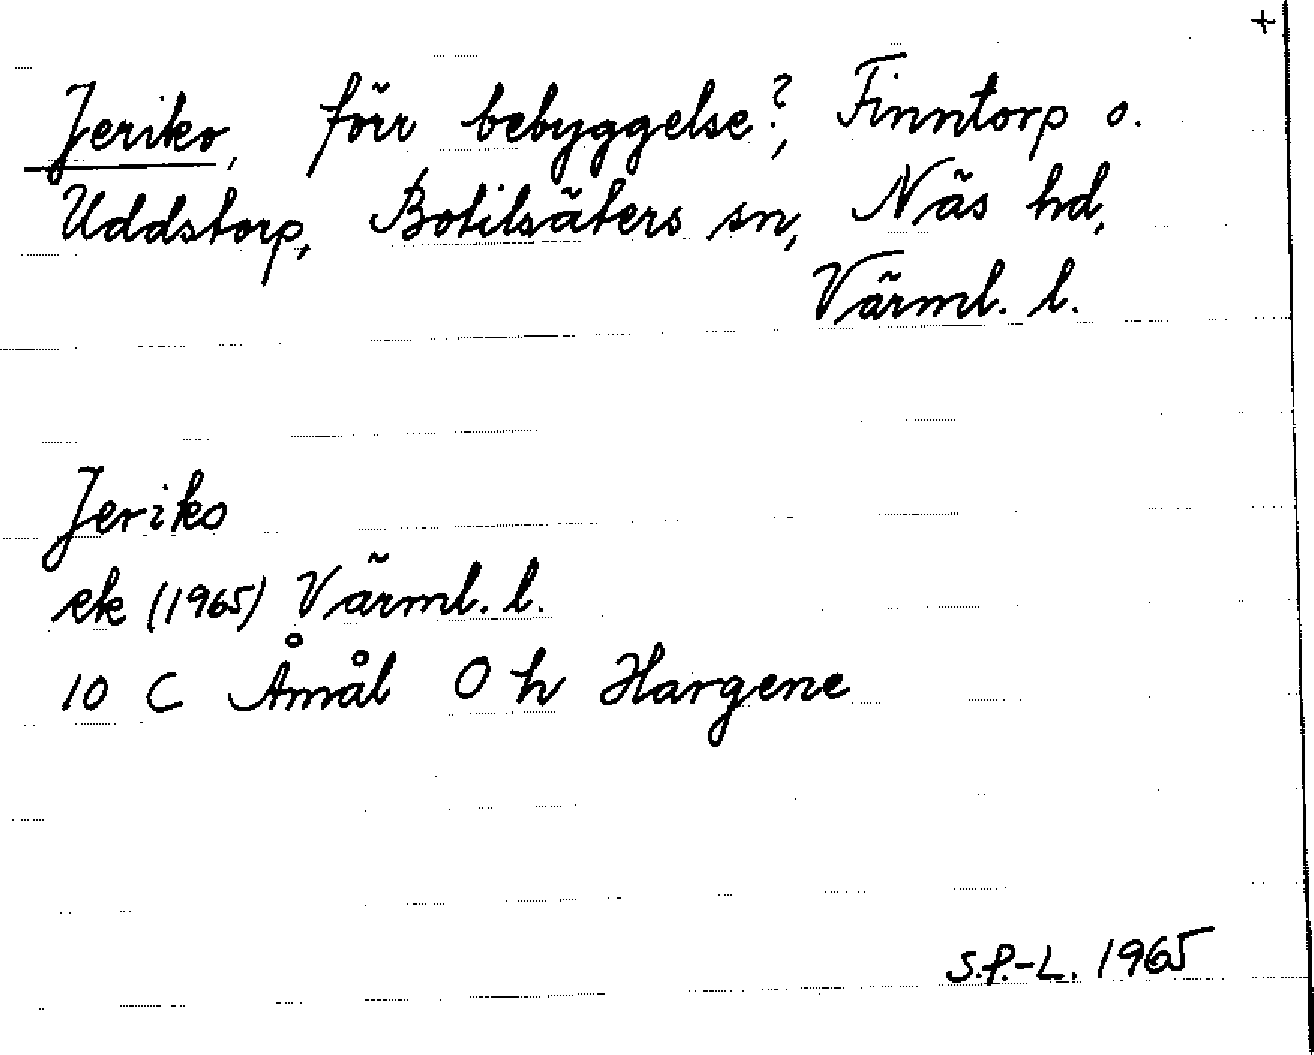 +
Jeriko, förr bebyggelse?, Finntorp o.
Uddstorp, Botilsäters sn, Näs hd,
Värml. l.
Jeriko
ek (1965) Värml. l.
10 C Åmål O h Hargene
S.P.-L. 1965